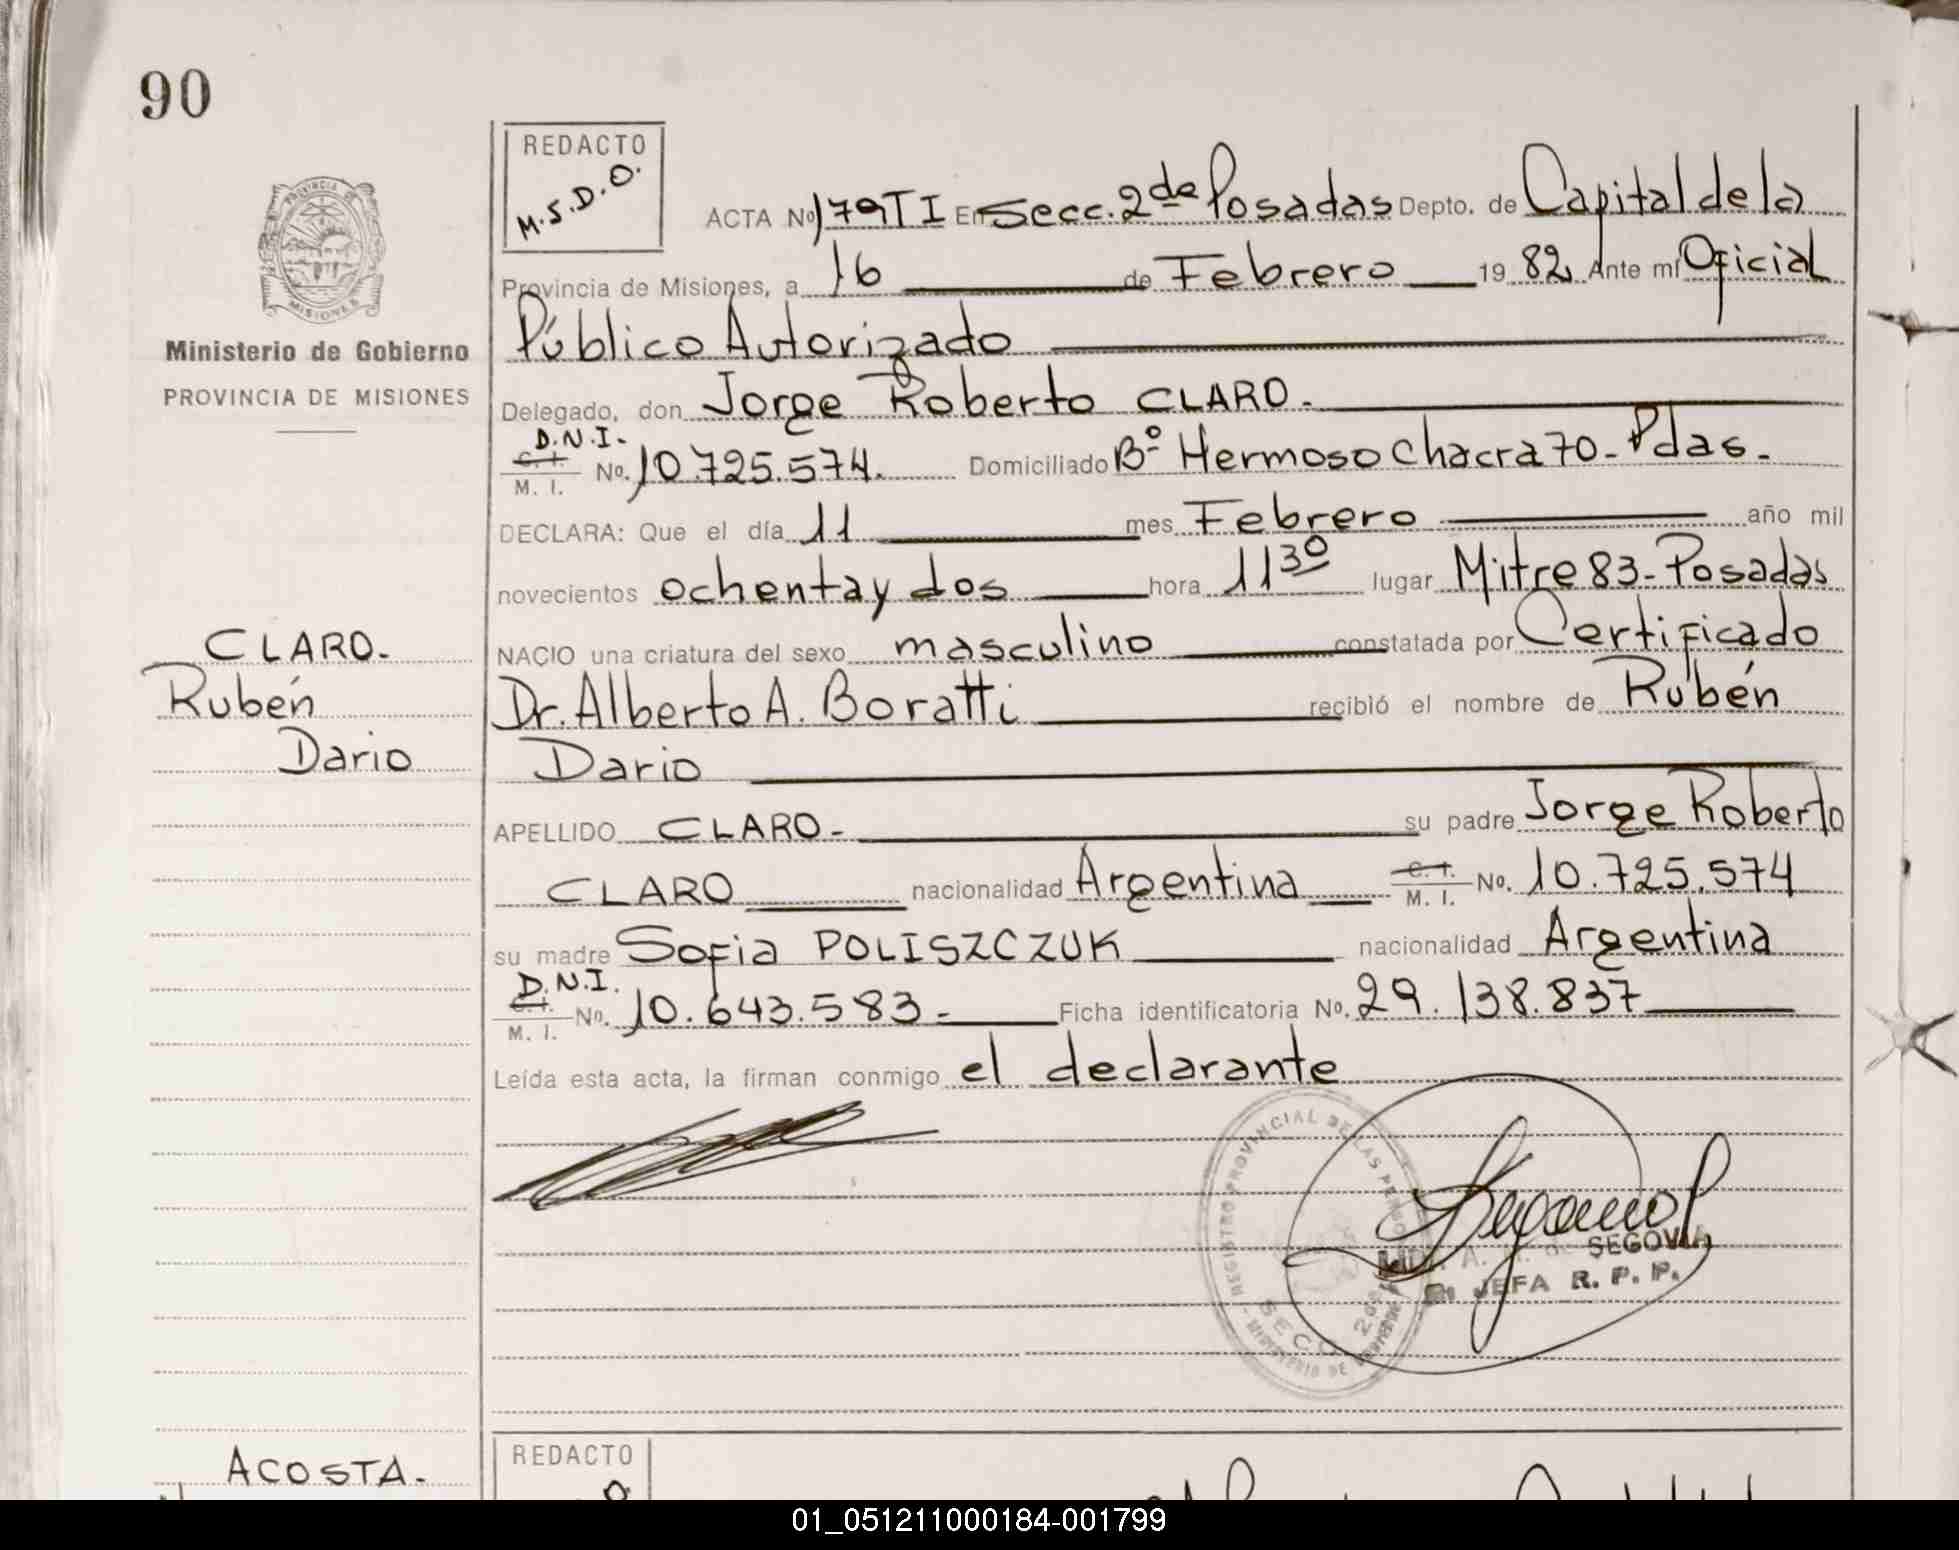 90
REDACTO
M.S.D.O.
ACTA No 179TI En Secc. 2da Posadas Depto. de Capital de la
Provincia de Misiones, a 16 de Febrero 1982 Ante mí Oficial
Público Autorizado
PROVINCIA DE
MISIONES
Ministerio de Gobierno
PROVINCIA DE MISIONES
Delegado, don Jorge Roberto CLARO.
D.N.I.
C. I.
M. I. No. 10.725.574. Domiciliado Bº Hermoso Chacra 70-Pdas.
DECLARA: Que el día 11 mes Febrero año mil
novecientos ochenta y dos hora 11 30 lugar Mitre 83-Posadas
CLARO.
Rubén
Dario
NACIO una criatura del sexo masculino constatada por Certificado
Dr. Alberto A. Boratti recibió el nombre de Rubén
Dario
APELLIDO CLARO- su padre Jorge Roberto
CLARO nacionalidad Argentina C. I. M. I. No. 10.725.574
su madre Sofia POLISZCZUK nacionalidad Argentina
D.N.I.
C. I.
M. I. No. 10.643.583- Ficha identificatoria No. 29.138.837
Leída esta acta, la firman conmigo el declarante
REGISTRO PROVINCIAL DE LAS PERSO
SECC
MINISTERIO DE
SEGOVIA
JEFA R. P. P.
ACOSTA.
REDACTO
01_051211000184-001799